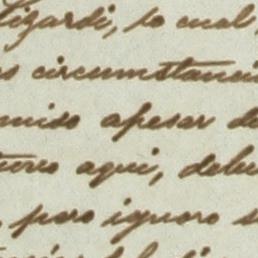 Lizardi, lo cual
circumstanci
miso apesar de
aqui, debe
pero ignoro s